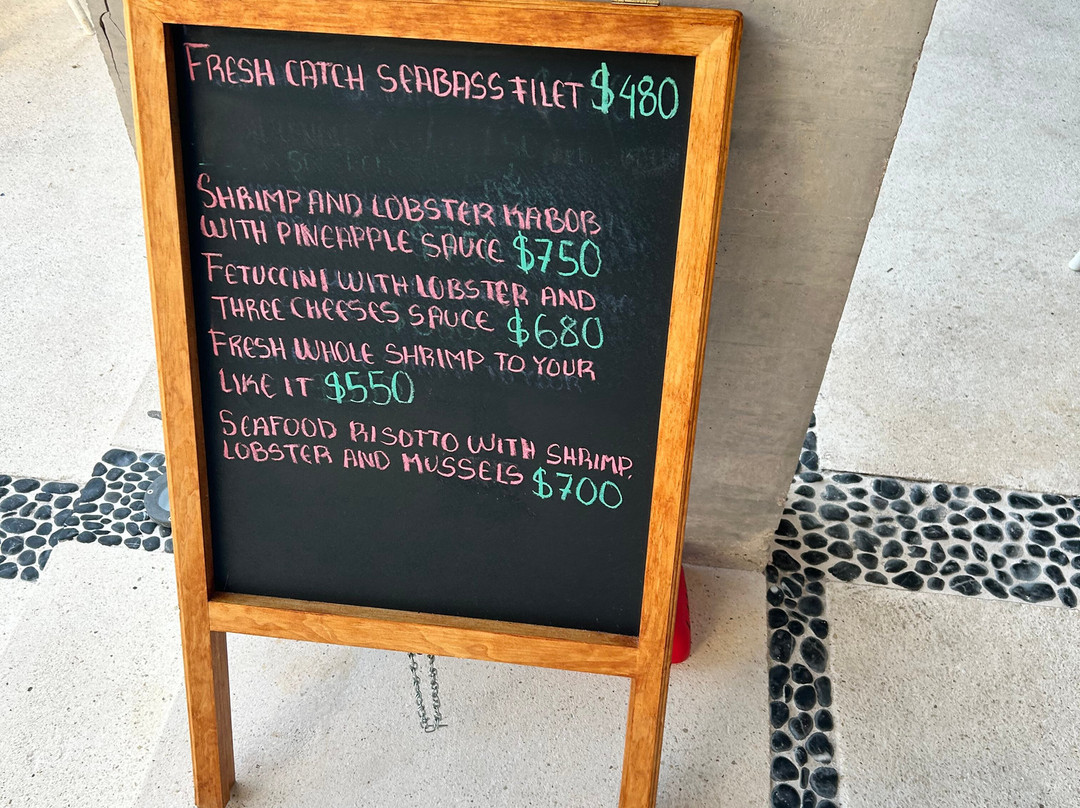 FRESH CATCH SEABASS FILET $480
SHRIMP AND LOBSTER KABOB
WITH PINEAPPLE SAUCE $750
FETUCCINI WITH LOBSTER AND
THREE CHEESES SAUCE $680
FRESH WHOLE SHRIMP TO YOUR
LIKE IT $550
SEAFOOD RISOTTO WITH SHRIMP,
LOBSTER AND MUSSELS $700